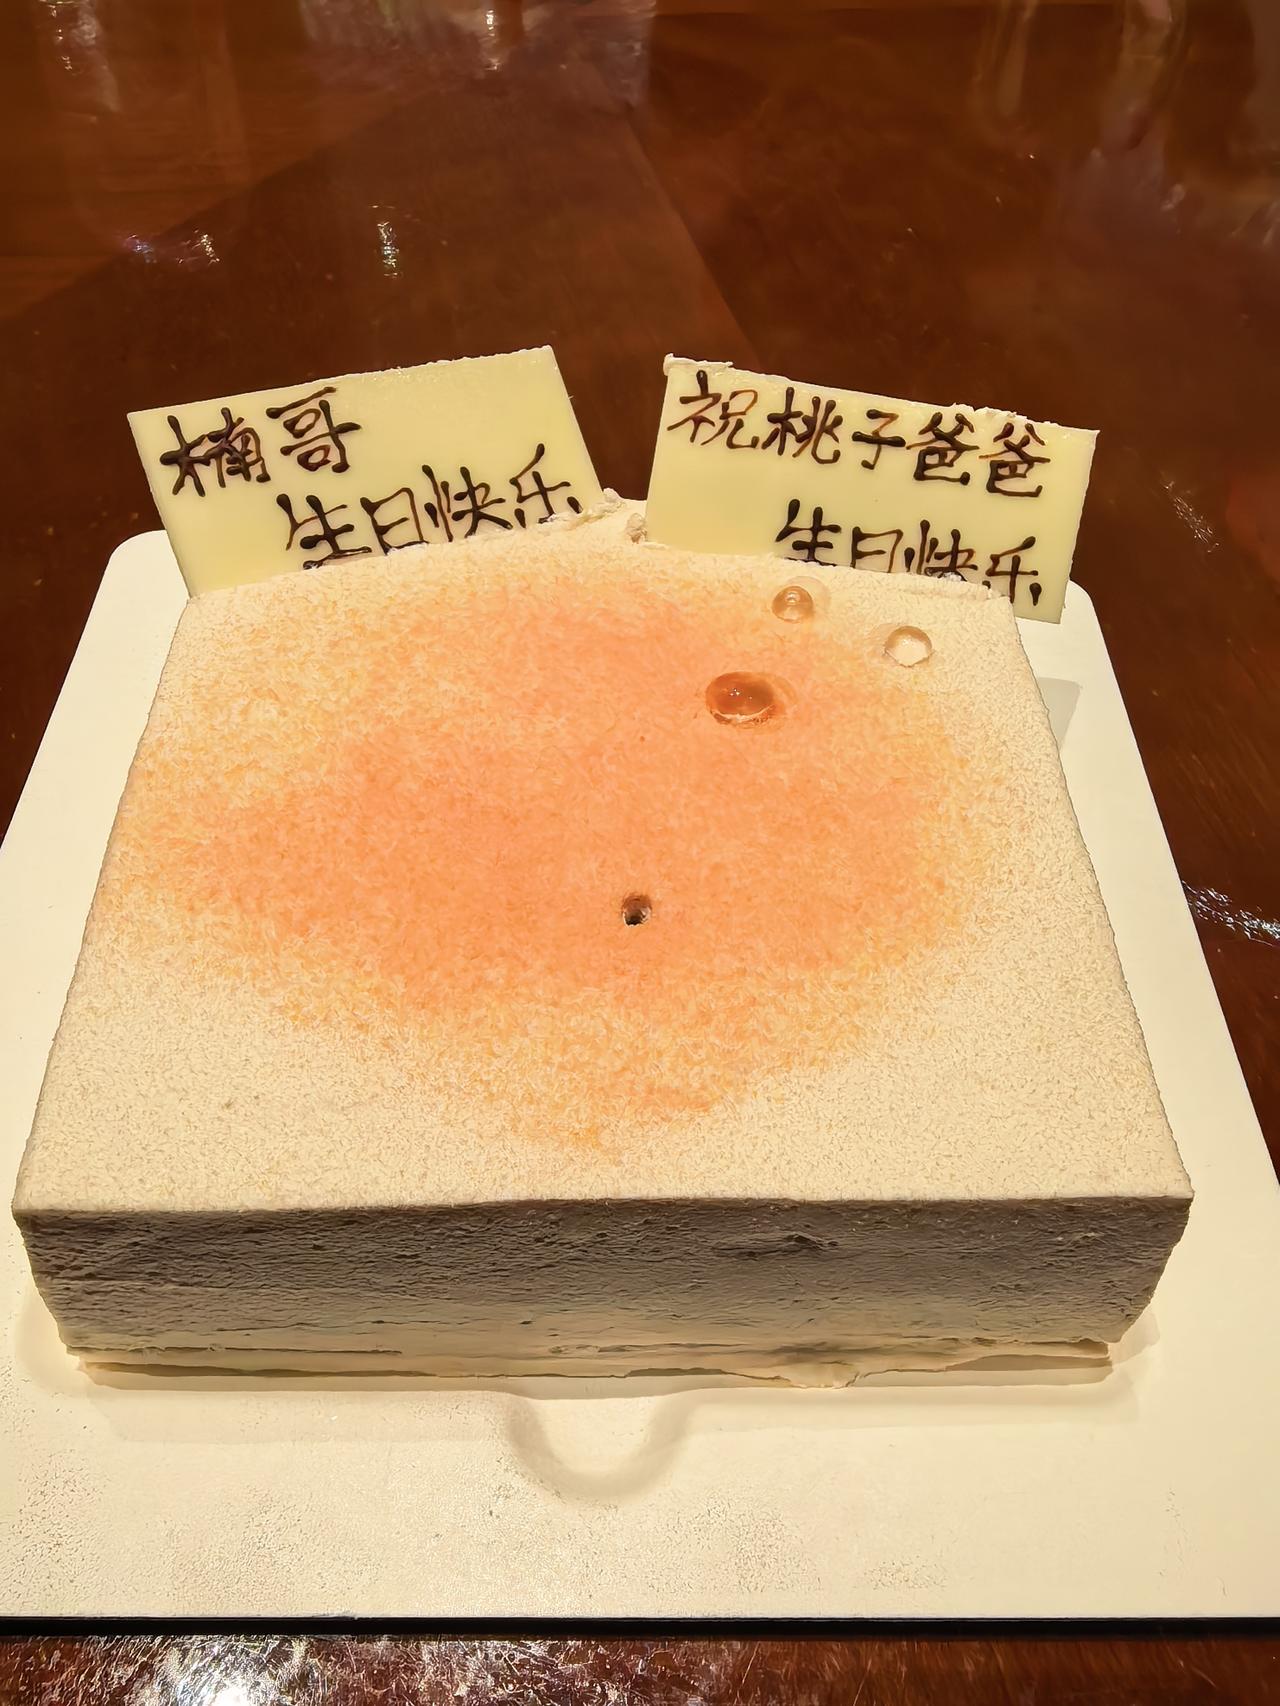 楠哥
生日快乐
祝桃子爸爸
生日快乐